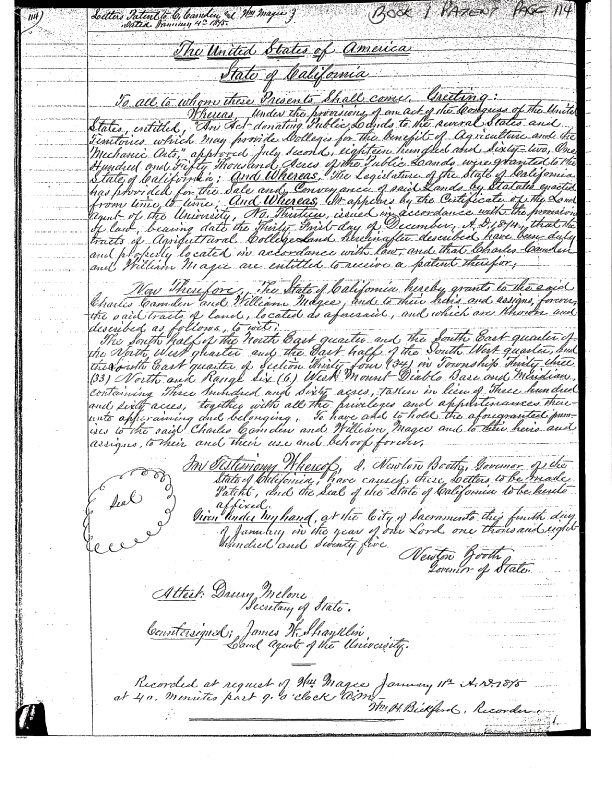 114)
Letters Patent to C. Camden and Wm Magee }
Dated January 4th 1875.
BOOK 1 PATENT PAGE 114
The United States of America
State of California
To all to whom these Presents Shall come, Greeting:
Whereas, under the provisions of an act of the Congress of the United
States, entitled, "An Act donating Public Lands to the several States and
Territories which may provide Colleges for the benefit of Agriculture and the
Mechanic Arts," approved July second, eighteen hundred and sixty-two, One
Hundred and Fifty Thousand Acres of the Public Lands were granted to the
State of California; And Whereas, The Legislature of the State of California
has provided for the Sale and Conveyance of said Lands by Statutes enacted
from time to time; And Whereas, It appears by the Certificate of the Land
Agent of the University, No. Thirteen, issued in accordance with the provisions
of law, bearing date the Thirty First day of December, A.D. 1874, that the
tracts of Agricultural College Land hereinafter described have been duly
and properly located in accordance with law, and that Charles Camden
and William Magee are entitled to receive a patent therefor;
Now Therefore, The State of California hereby grants to the said
Charles Camden and William Magee, and to their heirs and assigns, forever,
the said tracts of land, located as aforesaid, and which are known and
described as follows, to wit:
The South half of the North East quarter and the South East quarter of
the North West quarter and the East half of the South West quarter, and
the North East quarter of Section Thirty four (34) in Township Thirty three
(33) North and Range Six (6) West Mount Diablo Base and Meridian,
containing Three hundred and Sixty acres, taken in lieu of Three hundred
and sixty acres, together with all the privileges and appurtenances there-
unto appertaining and belonging, To have and to hold the aforegranted prem-
ises to the said Charles Camden and William Magee and to their heirs and
assigns, to their and their use and behoof forever.
In Testimony Whereof, I, Newton Booth, Governor of the
State of California, have caused these Letters to be made
Patent, and the Seal of the State of California to be hereto
affixed.
Seal
Given under my hand, at the City of Sacramento, this fourth day
of January in the year of our Lord one thousand eight
hundred and seventy five.
Newton Booth
Governor of State.
Attest: Drury Melone
Secretary of State.
Countersigned; James W. Shanklin
Land Agent of the University.
Recorded at request of Wm Magee January 11th A.D. 1875
at 40 minutes past 9 o'clock A.M.
Wm H. Bickford, Recorder.